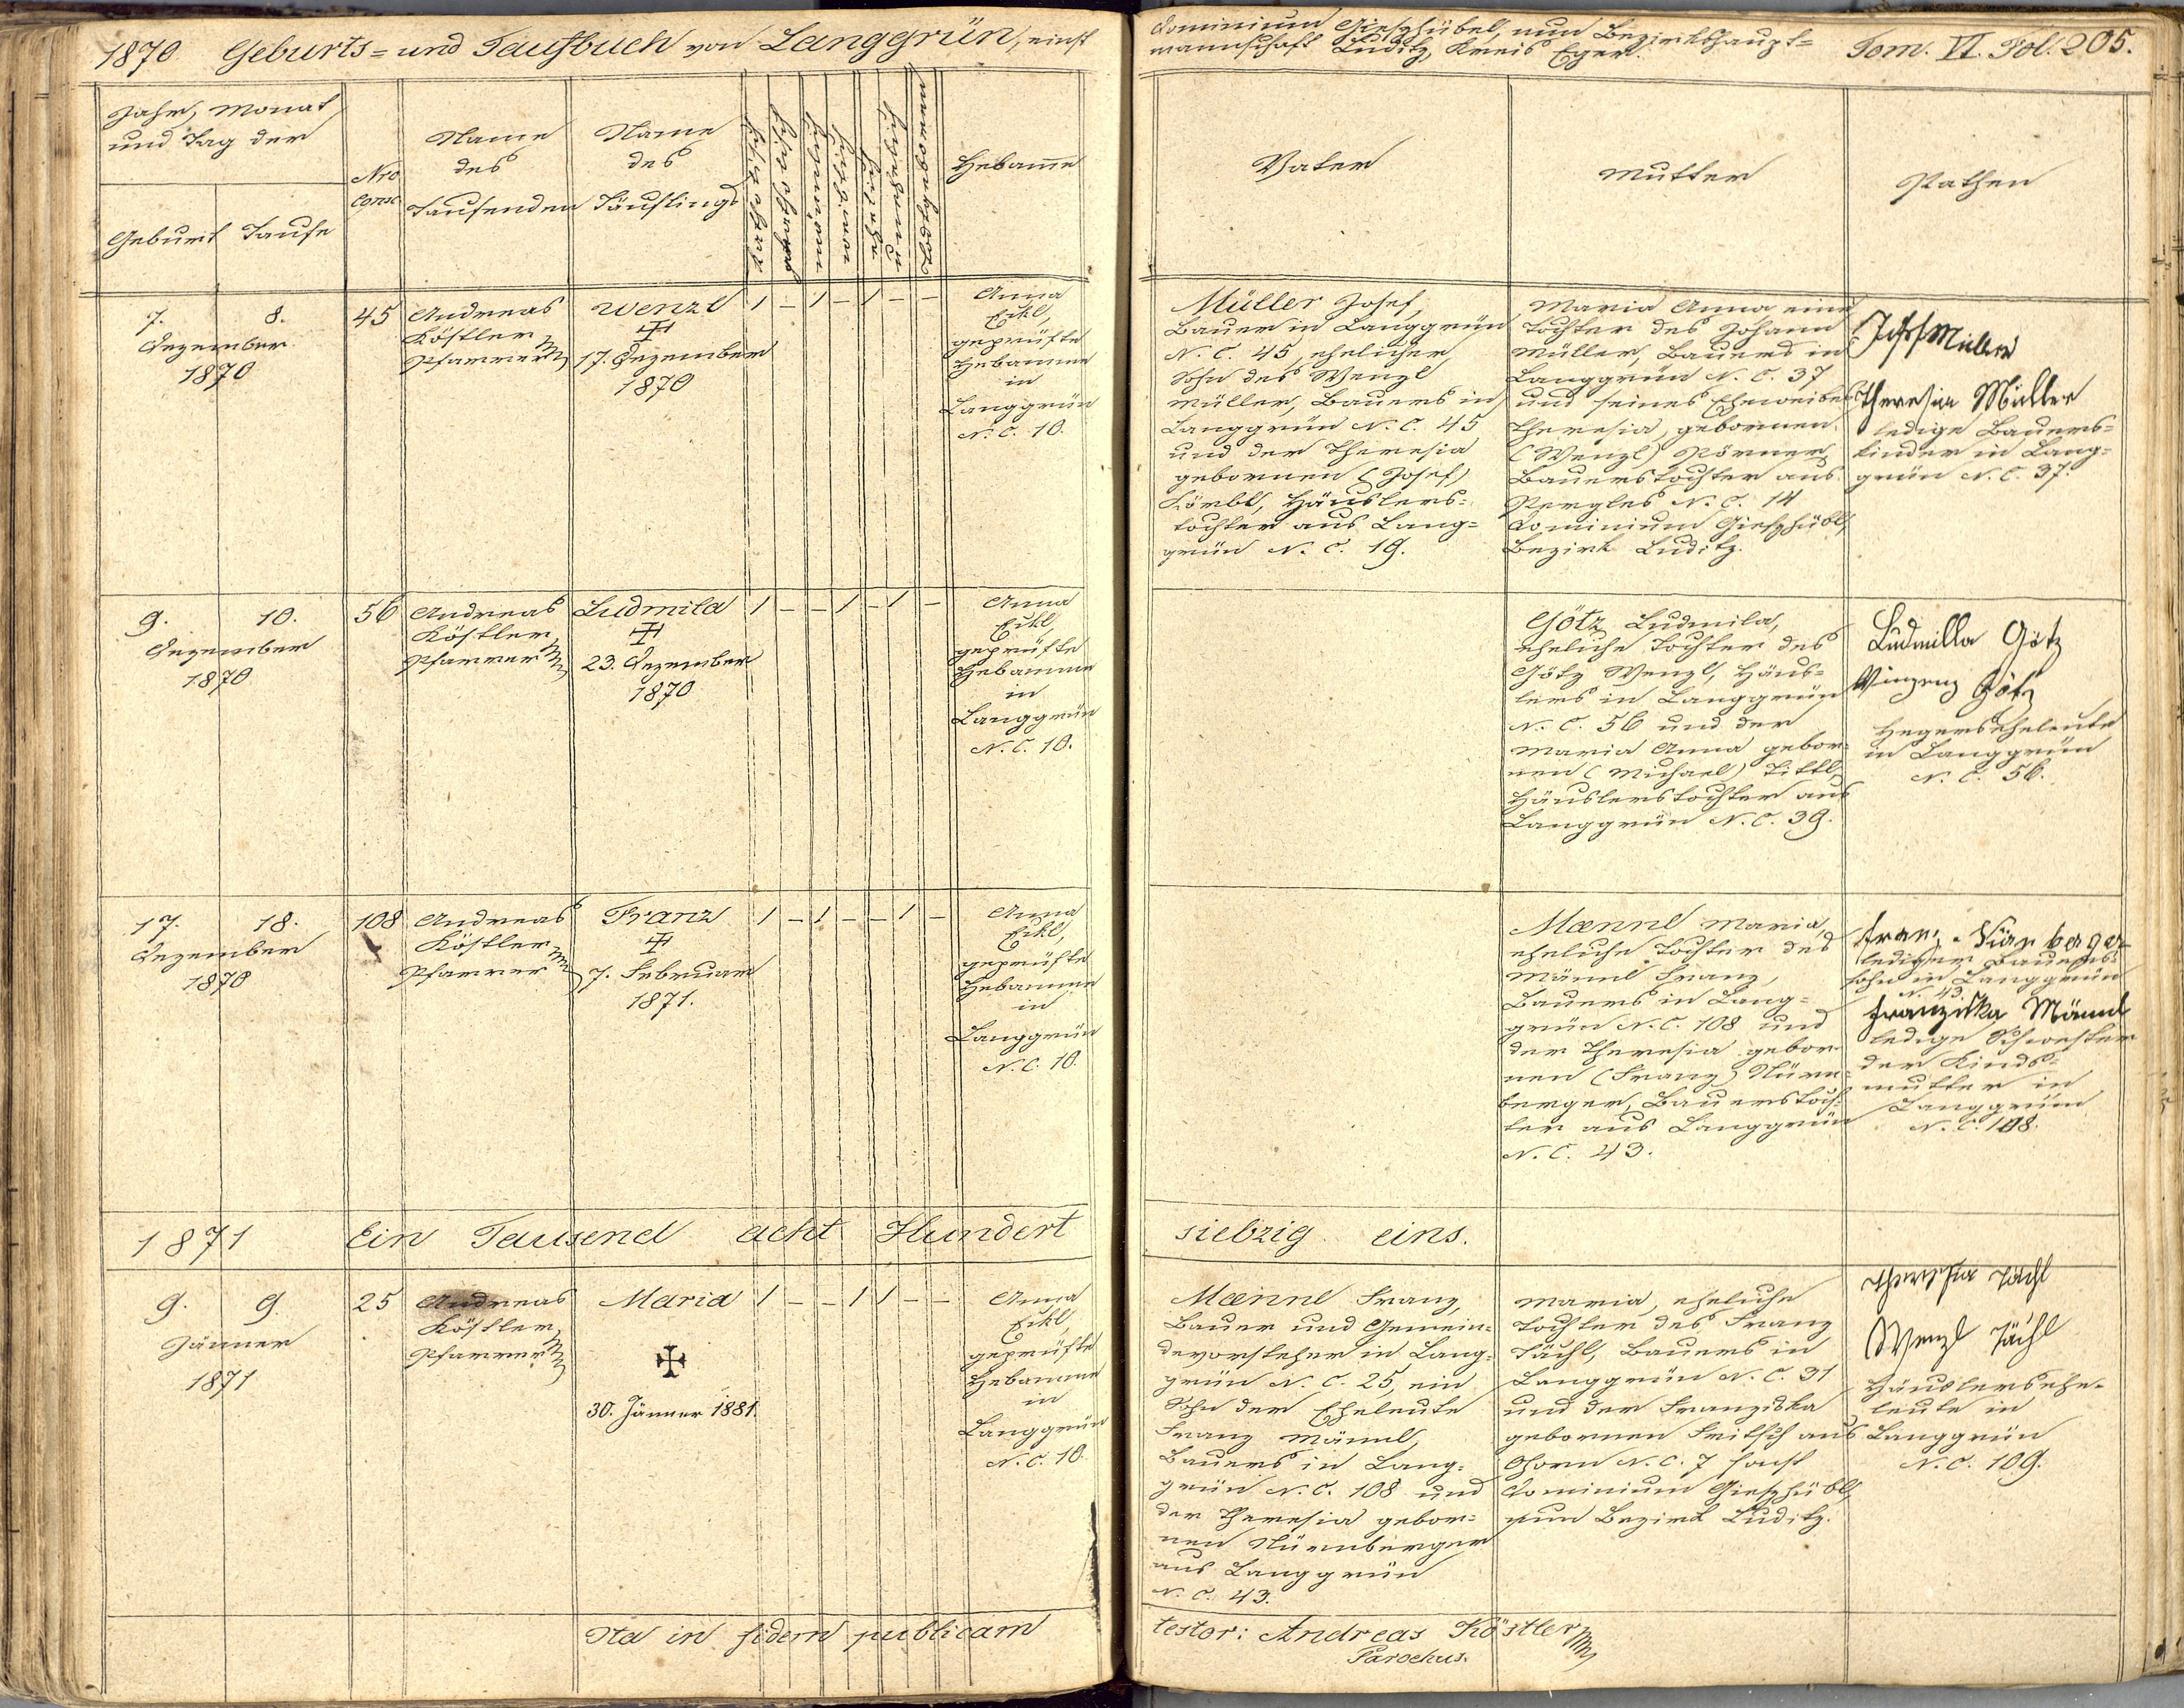 1870 Geburts= und Taufbuch von Langgrün, einst
Dominium Gieszhübel, nun Bezirkshaupt=
mannschaft Luditz, Kreis Eger.
Tom. VI. Fol. 205.
Jahr, Monat
und Tag der
Geburt Taufe
Nro
Consc
Name
des
Taufenden
Name
des
Täuflings
Todtgeboren
Hebamme
Vater
Mutter
Pathen
7. 8.
Dezember
1870
45
Andreas
Köstler
Pfarrer
Wenzl
17. Dezember
1870
1 – 1 – 1 – –
Anna
Eckl,
geprüfte
Hebamme
in
Langgrün
N. C. 10.
Müller Josef,
Bauer in Langgrün
N. C. 45, ehelicher
Sohn des Wenzl
Müller, Bauers in
Langgrün N. C. 45
und der Theresia
gebornen (Josef)
Häuslers=
tochter aus Lang=
grün N. C. 19.
Maria Anna eine
Tochter des Johann
Müller, Bauers in
Langgrün N. C. 37
und seines Eheweibes
Theresia, gebornen
(Wenzl) Körner,
Bauerstochter aus
Pergles N. C. 14
Dominium Gieszhübl,
Bezirk Luditz.
Josef Müller
Theresia Müller
ledige Bauers=
kinder in Lang=
grün N. C. 37.
9. 10.
Dezember
1870
56
Andreas
Köstler
Pfarrer
Ludmila
23. Dezember
1870
1 – – 1 – 1 –
Anna
Eckl,
geprüfte
Hebamme
in
Langgrün
N. C. 10.
Götz Ludmila,
eheliche Tochter des
Götz Wenzl, Häus=
lers in Langgrün
N. C. 56 und der
Maria Anna gebor=
nen (Michael) Tittl,
Häuslerstochter aus
Langgrün N. C. 39.
Ludmilla Götz
Vinzenz Götz
Hegerseheleute
in Langgrün
N. C. 56.
17. 18.
Dezember
1870
108
Andreas
Köstler
Pfarrer
Franz
7. Februar
1871.
1 – 1 – – 1 –
Anna
Eckl,
geprüfte
Hebamme
in
Langgrün
N. C. 10.
Mænnl Maria
eheliche Tochter des
Männl Franz,
Bauers in Lang=
grün N. C. 108 und
der Theresia gebor=
nen (Franz) Nürn=
berger, Bauerstoch=
ter aus Langgrün
N. C. 43.
Franz Nürnberger
lediger Bauers=
sohn in Langgrün
N. 43.
Franziska Männl
ledige Schwester
der Kinds=
mutter in
Langgrün
N. C. 108.
1871 Ein Tausend acht Hundert siebzig eins.
9. 9.
Jänner
1871
25
Andreas
Köstler
Pfarrer
Maria
30. Jänner 1881.
1 – – 1 1 – –
Anna
Eckl,
geprüfte
Hebamme
in
Langgrün
N. C. 10.
Mænnl Franz,
Bauer und Gemein=
devorsteher in Lang=
grün N. C. 25, ein
Sohn der Eheleute
Franz Männl,
Bauers in Lang=
grün N. C. 108 und
der Theresia gebor=
nen Nürnberger
aus Langgrün
N. C. 43.
Maria, eheliche
Tochter des Franz
Tächl, Bauers in
Langgrün N. C. 31
und der Franziska
gebornen Fritsch aus
Ohorn N. C. 7 sonst
Dominium Gieszhübl,
nun Bezirk Luditz.
Theresia Tächl
Wenzl Tächl
Häuslersehe=
leute in
Langgrün
N. C. 109.
Ita in fidem publicam
testor: Andreas Köstler
Parochus.